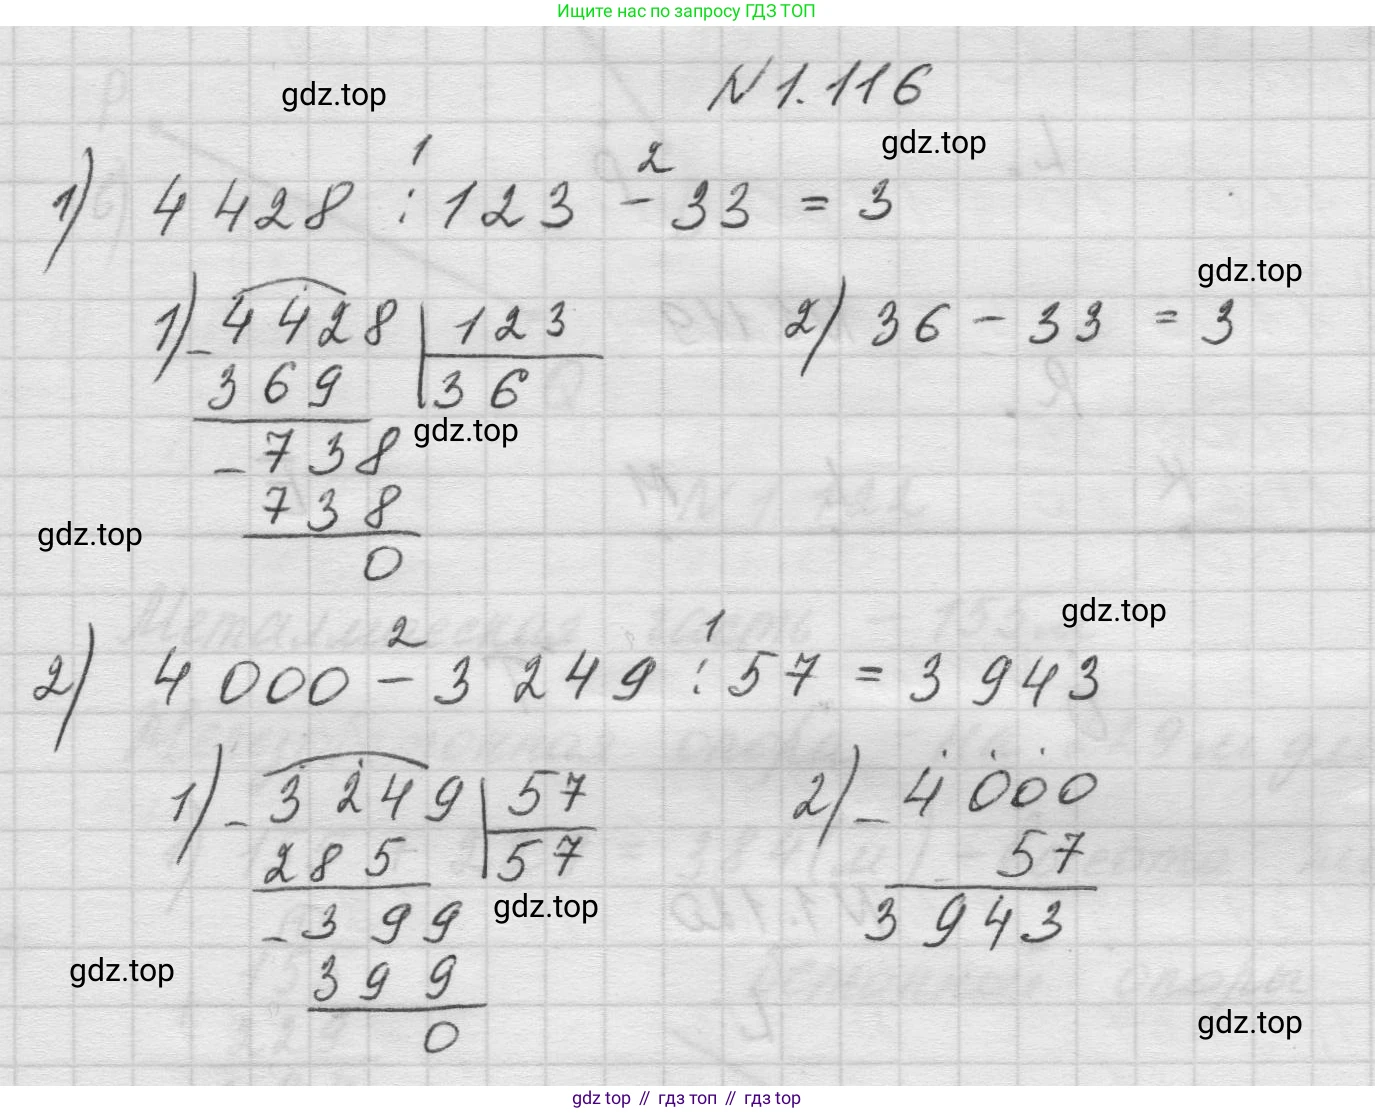 Ищите нас по запросу ГДЗ ТОП
N 1.116
gdz.top
gdz.top
1) 4428 : 123 - 33 = 3
1 2
gdz.top
1) 4428 | 123
- 369 | 36
- 738
738
0
2) 36 - 33 = 3
gdz.top
gdz.top
gdz.top
2) 4000 - 3249 : 57 = 3943
2 1
1) - 3249 | 57
285 | 57
- 399
399
0
2) - 4000
57
3943
gdz.top
gdz.top
gdz.top
gdz.top // гдз топ // гдз top